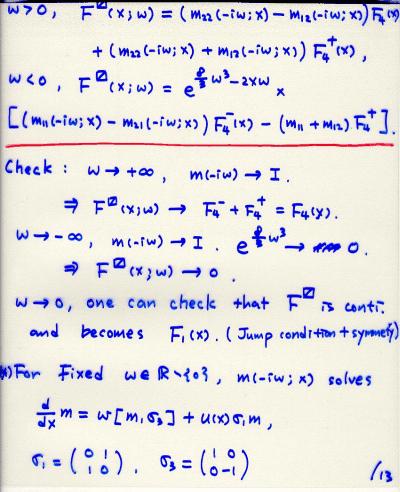 w>0, F^⧄(x;w) = (m₂₂(-iw;x) - m₁₂(-iw;x)) F₄⁻(x)
+ (m₂₂(-iw;x) + m₁₂(-iw;x)) F₄⁺(x),
w<0, F^⧄(x;w) = e^{8/3 w³ - 2xw} ×
[(m₁₁(-iw;x) - m₂₁(-iw;x)) F₄⁻(x) - (m₁₁ + m₁₂) F₄⁺].
Check : w → +∞, m(-iw) → I.
⇒ F^⧄(x;w) → F₄⁻ + F₄⁺ = F₄(x).
w → -∞, m(-iw) → I. e^{8/3 w³} → 0.
⇒ F^⧄(x;w) → 0.
w → 0, one can check that F^⧄ is conti.
and becomes F₁(x). (Jump condition + symmetry)
(*) For Fixed w ∈ ℝ \ {0}, m(-iw;x) solves
d/dx m = w[m,σ₃] + u(x)σ₁m,
σ₁ = (0 1 / 1 0), σ₃ = (1 0 / 0 -1)
/13